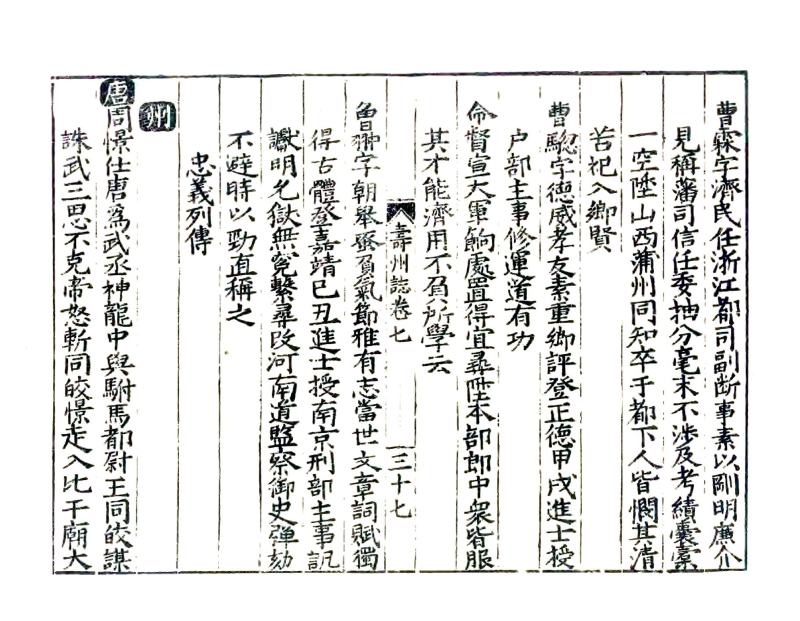 曹霖字濟民任浙江都司副断事素以剛明廉介
見稱藩司信任委抽分毫末不渉及考績囊橐
一空陞山西蒲州同知卒于都下人皆憫其清
苦祀入鄉賢
曹騘字德威孝友素重鄉評登正德甲戌進士授
户部主事修運道有功
命督宣大軍餉處置得宜尋陞本部郎中衆皆服
其才能濟用不負所學云
壽州誌卷七
三十七
魯翀字朝舉
負氣節雅有志當世文章詞賦獨
得古體登嘉靖己丑進士授南京刑部主事訊
讞明允獄無寃繫尋改河南道監察御史彈劾
不避時以勁直稱之
忠義列傳
州
唐周憬仕唐爲武丞神龍中與駙馬都尉王同皎謀
誅武三思不克帝怒斬同皎憬走入比干廟大